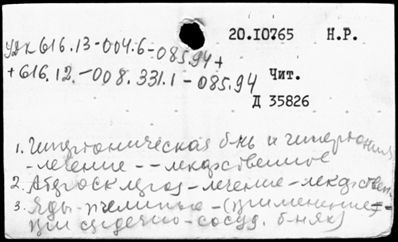 20.I0765 Н.Р.
УДК 616.13-004.6-085.94+
+616.12.-008.331.1-085.94 Чит.
Д 35826
1. Гипертоническая б-нь и гипертония
-лечение--лекарственное
2. Атеросклероз-лечение-лекарствен
3. Яды-пчелиные-(применение-
при сердечно-сосуд. б-нях)